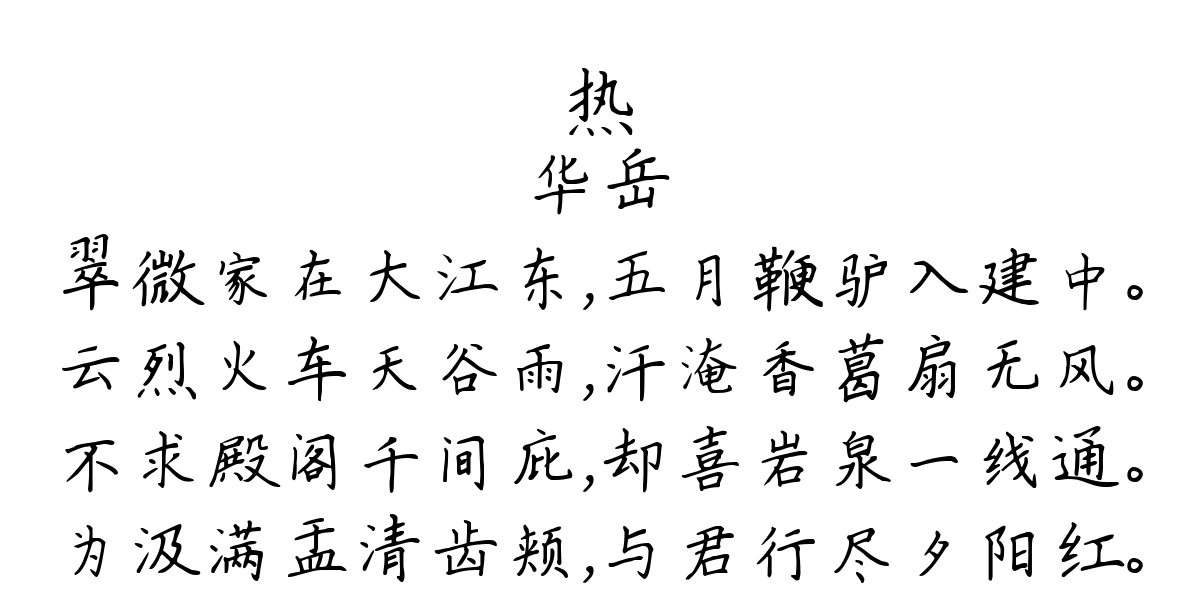 热
华岳
翠微家在大江东,五月鞭驴入建中。
云烈火车天谷雨,汗淹香葛扇无风。
不求殿阁千间庇,却喜岩泉一线通。
为汲满盂清齿颊,与君行尽夕阳红。